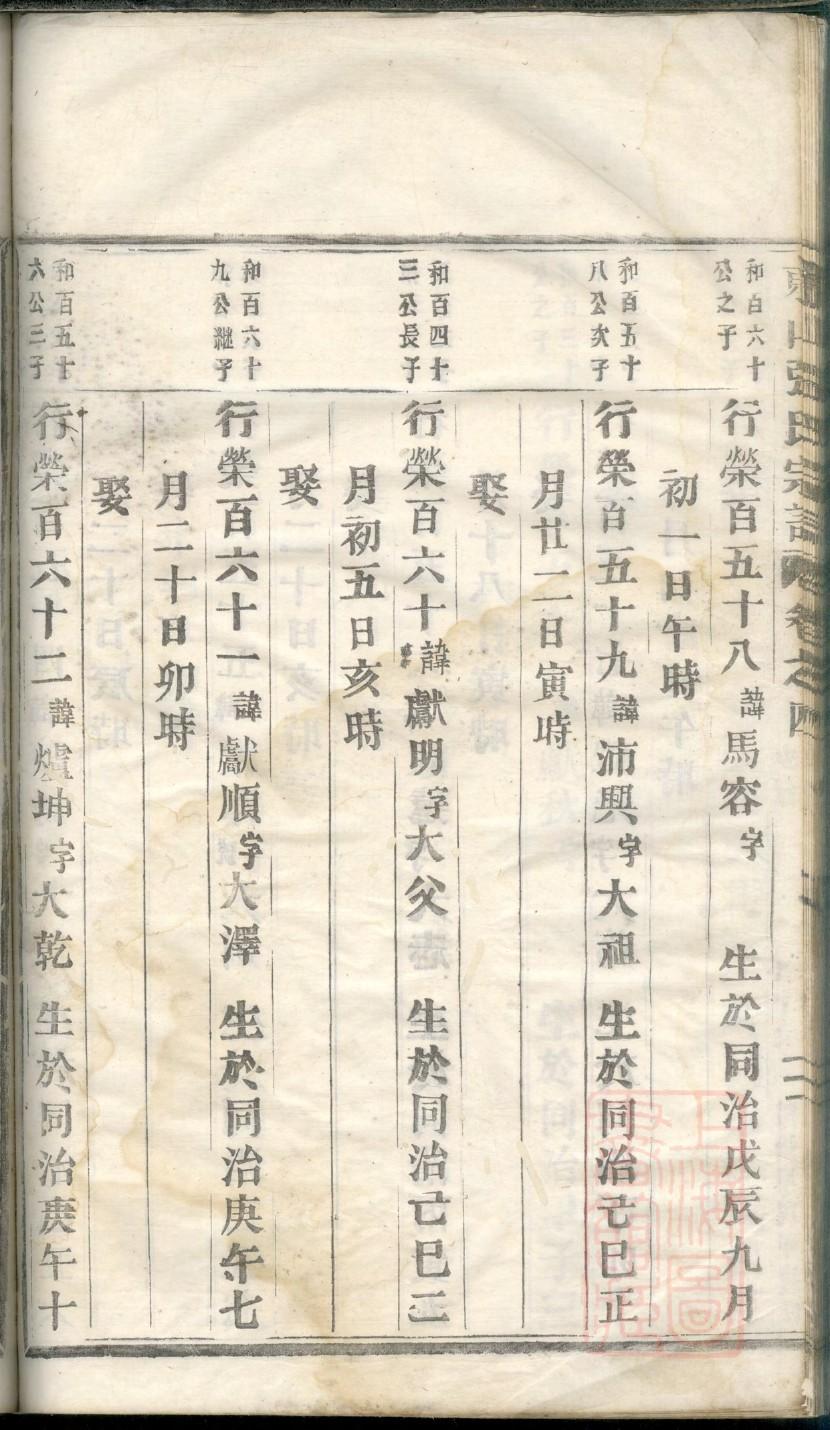 張氏宗譜 卷之四
和百六十
公之子
行榮百五十八 諱馬容字 生於同治戊辰九月
初一日午時
和百五十
八公次子
行榮百五十九 諱沛興字大祖 生於同治己巳正
月廿二日寅時
娶
和百四十
三公長子
行榮百六十 諱獻明字大父 生於同治己巳二
月初五日亥時
娶
和百六十
九公繼子
行榮百六十一 諱獻順字大澤 生於同治庚午七
月二十日卯時
娶
和百五十
六公三子
行榮百六十二 諱爐坤字大乾 生於同治庚午十